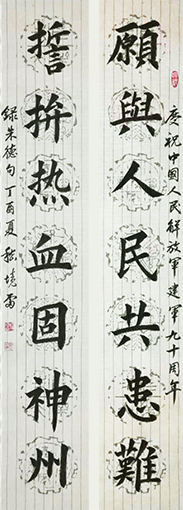 慶祝中國人民解放軍建軍九十周年
願與人民共患難
誓拚热血固神州
録朱德句丁酉夏